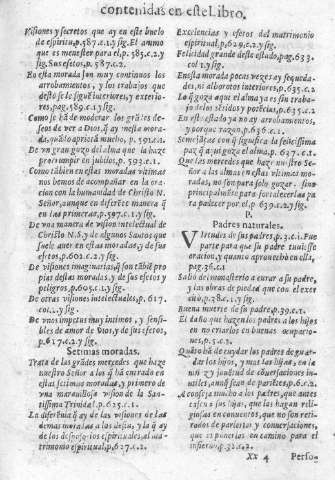 contenidas en este Libro.
Visiones y secretos que ay en este buelo
de espiritu, p.587.c.1.y sig. El animo
que es menester para el, p. 585.c.2.y
sig. Sus efetos, p. 587.c.2.
En esta morada son muy continuos los
arrobamentos, y los trabajos que
desto se le siguẽ interiores, y exterio-
res, pag. 589.c.1.y sig.
Como se hã de moderar los grãdes de-
seos de ver a Dios, q̃ ay en esta mora-
da, quãdo aprietã mucho, p. 591.c.1.
De vn gran gozo del alma que la haze
prorumpir en jubilos, p. 593.c.1.
Como tãbien en estas moradas vltimas
nos hemos de acompañar en la ora-
cion con la humanidad de Christo N.
Señor, aunque en diferẽte manera q̃
en las primeras, p.597.c.1.y sig.
De vna manera de vision intelectual de
Christo N.S. y de algunos Santos que
suele auer en estas moradas, y de sus
efetos, p.602.c.2.y sig.
De visiones imaginarias, q̃ son tãbiẽ pro
pias destas moradas, y de sus efetos y
peligros, p.605.c.1.y sig.
De otras visiones intelectuales, p. 617.
col.1.y sig.
De vnos impetus muy intimos, y sensi-
bles de amor de Dios, y de sus efetos,
p.617.c.2.y sig.
Setimas moradas.
Trata de las grãdes mercedes que haze
nuestro Señor a los q̃ hã entrado en
estas setimas moradas, y primero de
vna marauillosa vision de la San-
tissima Trinidad, p.625.c.1.
La diferẽcia q̃ ay de las visiones de las
demas moradas a las desta, y la q̃ ay
de los desposorios espirituales, al ma-
trimonio espiritual, p.627.c.2.
Excelencias y efetos del matrimonio
espiritual, p.629.c.2.y sig.
Felicidad grande desta estado, pag.633.
col.1.y sig.
En esta morada pocas vezes ay sequeda-
des, ni alborotos interiores, p.635.c.1
La q̃ goza aqui el alma ya es sin traba-
jo de los sentidos y potẽcias, p.635.c.2
En este estado ya no ay arrobamentos,
y porque razon, p.636.c.1.
Semejãças con q̃ significa la serenissima
paz q̃ aqui goza el alma, p.637.c.2.
Que las mercedes que haze nuestro Se-
ñor a las almas en estas vltimas mo-
radas, no son para solo gozar, sino
principalmẽte para fortalecerlas pa
ra padecer por el, p.639.c.2.y sig.
P.
Padres naturales.
Virtudes de sus padres, p.3.c.1. Fue
parte para que su padre tuuiesse
oracion, y quanto aprouechò en ella,
pag.36.c.1
Salio del monasterio a curar a su padre,
y las obras de piedad que con el exer
citò, p.38.c.1.y sig.
Buena muerte de su padre, p.39.c.1.
El daño que hazen los padres a los hijos
en no criarlos en buenas ocupacio-
nes, p.5.c.2.
Quãto hã de cuydar los padres de guar-
dar los hijos, y mas las hijas, en la
niñez y juuẽtud de cõuersaciones in-
utiles, aunq̃ sean de pariẽtes, p.6.c.2.
Aconseja mucho a los padres, que antes
casen a sus hijas, que las hagan reli-
giosas en conuentos, que no son reti-
rados de parientes y conuersaciones,
que es ponerlas en camino para el
infierno, p.32.c.2.
Xx 4
Perso-